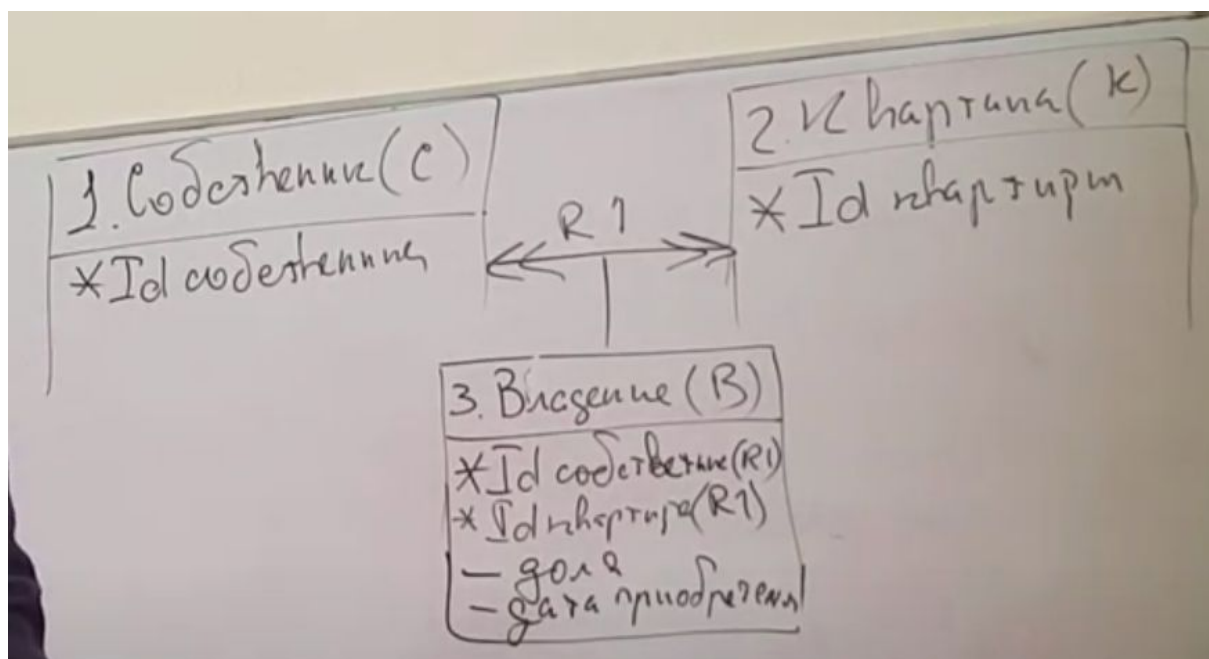 1. Собственник (С)
*Id собственника
R1
2. Квартира (К)
*Id квартиры
3. Владение (В)
*Id собственника (R1)
*Id квартира (R1)
– доля
– дата приобретения